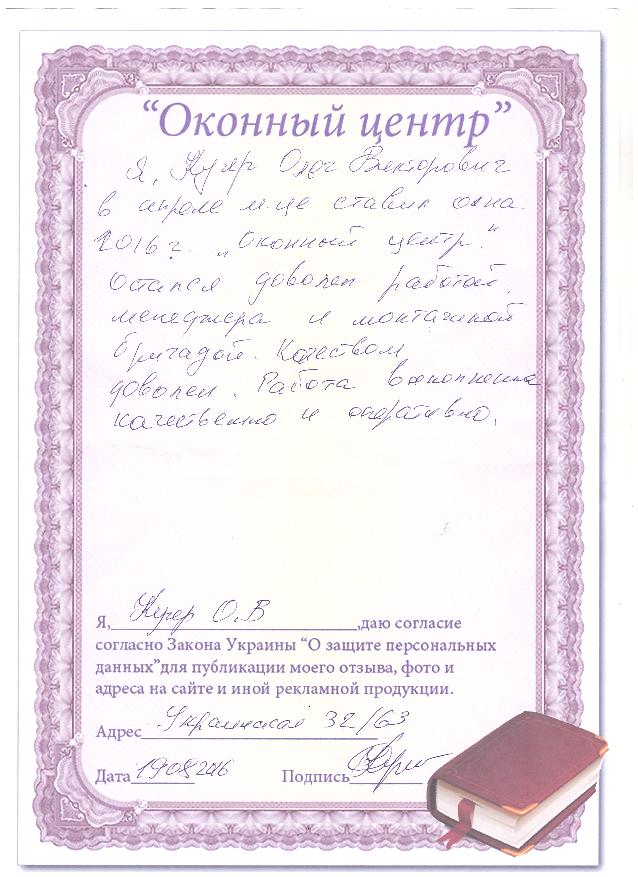 “Оконный центр”
Я, Олег Викторович
в апреле м-це ставил окна
2016 г. „Оконный центр."
Остался доволен работой
менеджера и монтажной
бригадой. Качеством
доволен. Работа выполнена
качественно и оперативно.
Я, О.В ,даю согласие
согласно Закона Украины “О защите персональных
данных”для публикации моего отзыва, фото и
адреса на сайте и иной рекламной продукции.
Адрес Украинская 32/63
Дата 19082016 Подпись